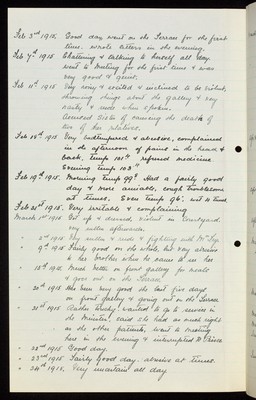 Feb 3rd 1915. Good day went on the Terrace for the first
time. wrote letters in the evening.
Feb 7th 1915 Chattering & talking to herself all day
went to Meeting for the first time & was
very good & quiet.
Feb 11th 1915 Very noisy & excited & inclined to be violent,
throwing things about the gallery & very
nasty & rude when spoken.
Accused Sister of causing the death of
two of her relatives.
Feb 18th 1915 Very bad tempered & abusive, complained
in the afternoon of pains in the head &
back, temp 101° refused medicine
Evening temp 103°
Feb 19th 1915. Morning temp 99° Had a fairly good
day & more amiable, cough troublesome
at times. Even temp 96.
Feb 20th 1915. Very irritable & complaining
March 1st 1915 Got up & dressed, violent in Courtyard,
very sullen afterwards.
" 5th 1915 Very sullen & rude & fighting with
" 9th 1915 Fairly good on the whole, but very abusive
to her brother when he came to see her
" 15th 1915 Much better on front gallery for meals
& goes out on the Terrace.
" 20th 1915 Has been very good the last five days
on front gallery & going out on the Terrace
" 21st 1915 Rather touchy, wanted to go to service in
the Minster, said she had as much right
as the other patients, went to Meeting
here in the evening & interrupted the service
" 22nd 1915 Good day.
" 23rd 1915 Fairly good day. abusive at times.
" 24th 1915. Very uncertain all day